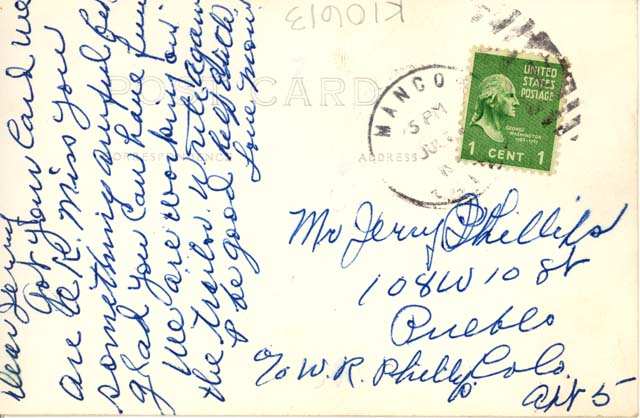 Dear Jerry
Got your Card we
are O.K. Miss you
something awful but
glad you can have fun
we are working on
the trailer. Write again
& be good heb
Love mom
K10613
POST CARD
CORRESPONDENCE
ADDRESS
MANCO
5 PM
UNITED
STATES
POSTAGE
GEORGE
WASHINGTON
1789-1797
1 CENT 1
Mr Jerry Phillips
108 W 10 St
Pueblo
Colo.
c/o W. R. Phillips
apt 5